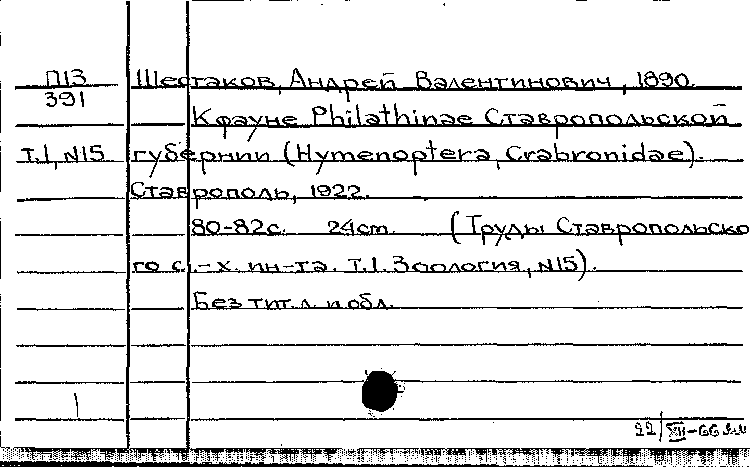 П13 Шестаков, Андрей Валентинович, 1890.
391
К фауне Philathinae Ставропольской
Т.1, N15 губернии (Hymenoptera, Crabronidae).
Ставрополь, 1922.
80-82с. 24cm. (Труды Ставропольско
го с.-х. ин-та. Т.1. Зоология, N15).
Без тит. л. и обл.
22/XII-66